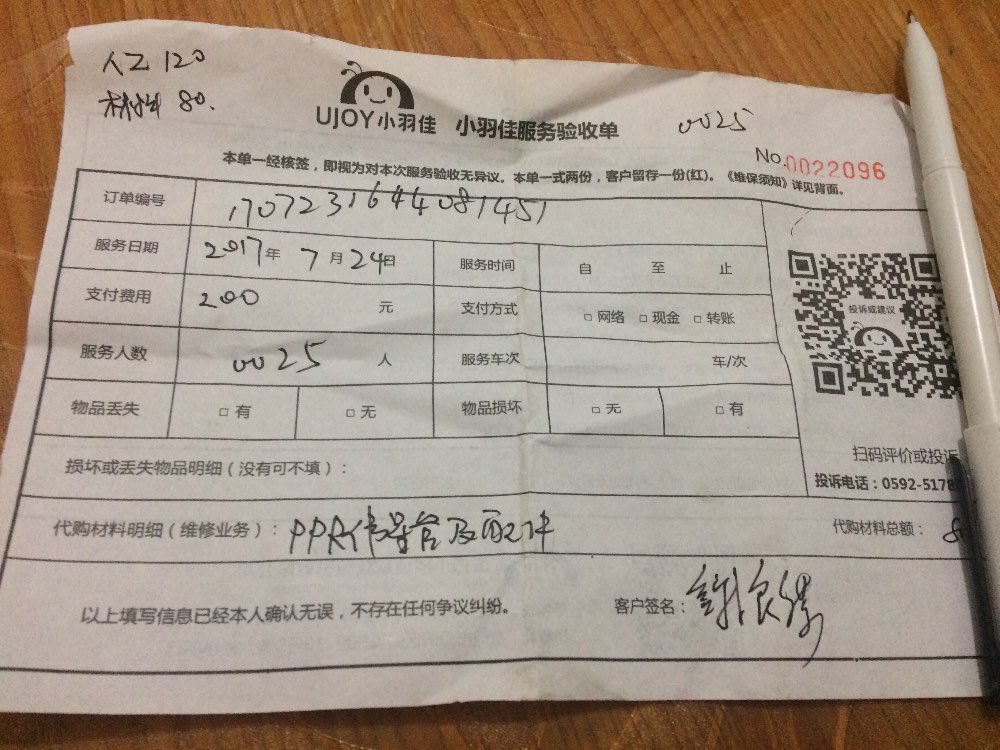 人工 120
材料 80.
UJOY小羽佳 小羽佳服务验收单
0025
No.0022096
本单一经核签，即视为对本次服务验收无异议。本单一式两份，客户留存一份(红)。《维保须知》详见背面。
订单编号 1707231644081451
服务日期 2017年 7月24日 服务时间 自 至 止
投诉或建议
支付费用 200 元 支付方式 □ 网络 □ 现金 □ 转账
服务人数 0025 人 服务车次 车/次
物品丢失 □ 有 □ 无 物品损坏 □ 无 □ 有
扫码评价或投诉
损坏或丢失物品明细（没有可不填）：
投诉电话：0592-5178
代购材料明细（维修业务）： PPR 管及配件 代购材料总额： 8
以上填写信息已经本人确认无误，不存在任何争议纠纷。 客户签名：